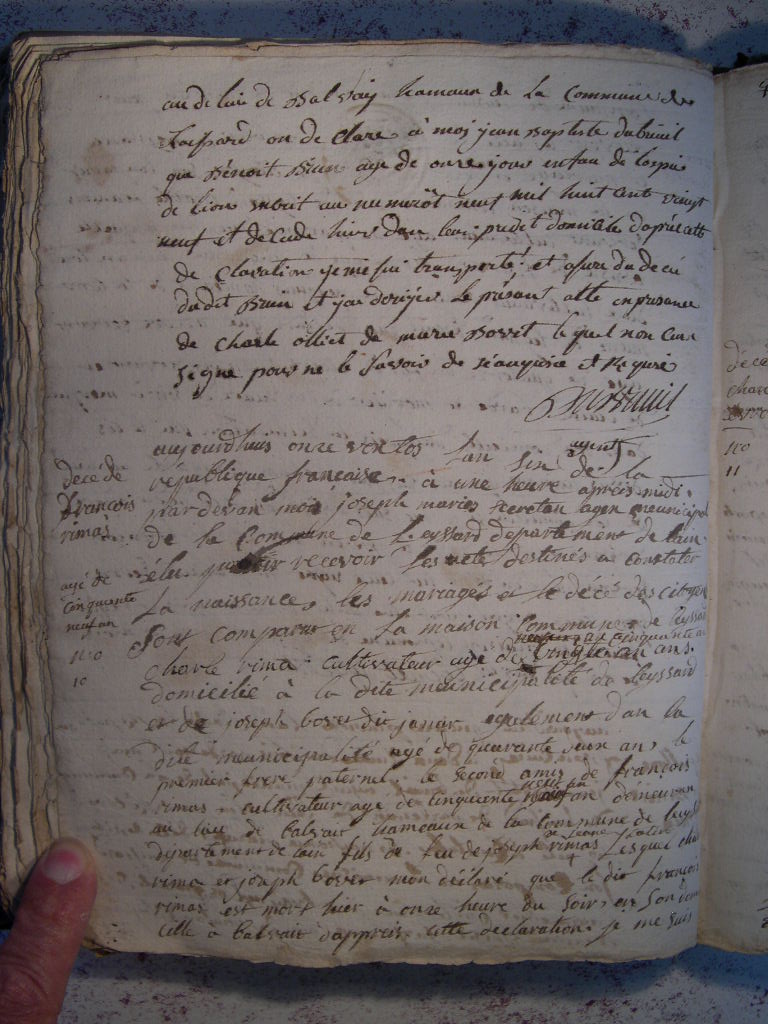 au de lieu de Balvay hameaux de la Commune de
ou de Clare à moy jean Baptiste dubreuil
que Bénoit Brun age de onze jour enfan de lospis
de lion inscrit au numeröt neuf mil huit cent vingt
neuf et decede hiers dan leur predit domicile daprés cette
de Claration je me sui transporté et asure du decé
dudit Brun et jai dorigér le présant atte en présance
de Charle olliet de marie Bovet le quel non
signe pour ne le savoir de ce anquire et Requi
Dubreuil
aujourdhuis onze ventos lan sin de la
république francaise à une heure après midi
pardevan moi joseph marie agen meunicipal
de la Commune de Leyssard departement de lain
élu pour recevoir les acte destinés a constater
la naissance, les mariages et le décé des citoyen
sont comparus en la maison Commune de leyssard
charle rima cultivateur age de cinquante an
domicilié à la dite meunicipaleté de leyssard
et de joseph bovet dit janar egalement dan la
dite meunicipalité agé de quarante an, le
premier frere paternel, le second amis de françois
rimas cultivateur age de cinquente neuf an demeuran
au lieu de balvait hameaux de la commune de leyss
departement de lain fils de feu de joseph rimas Lesquel cha
rima et joseph bovet mon déclaré que le dit françois
rimas est mort hier à onze heure du soir en son dom
cille à balvait dapprés cette declaration je me suis
déce de
françois
rimas
agé de
cinquente
neuf an
no
10
déce
charl
no
11